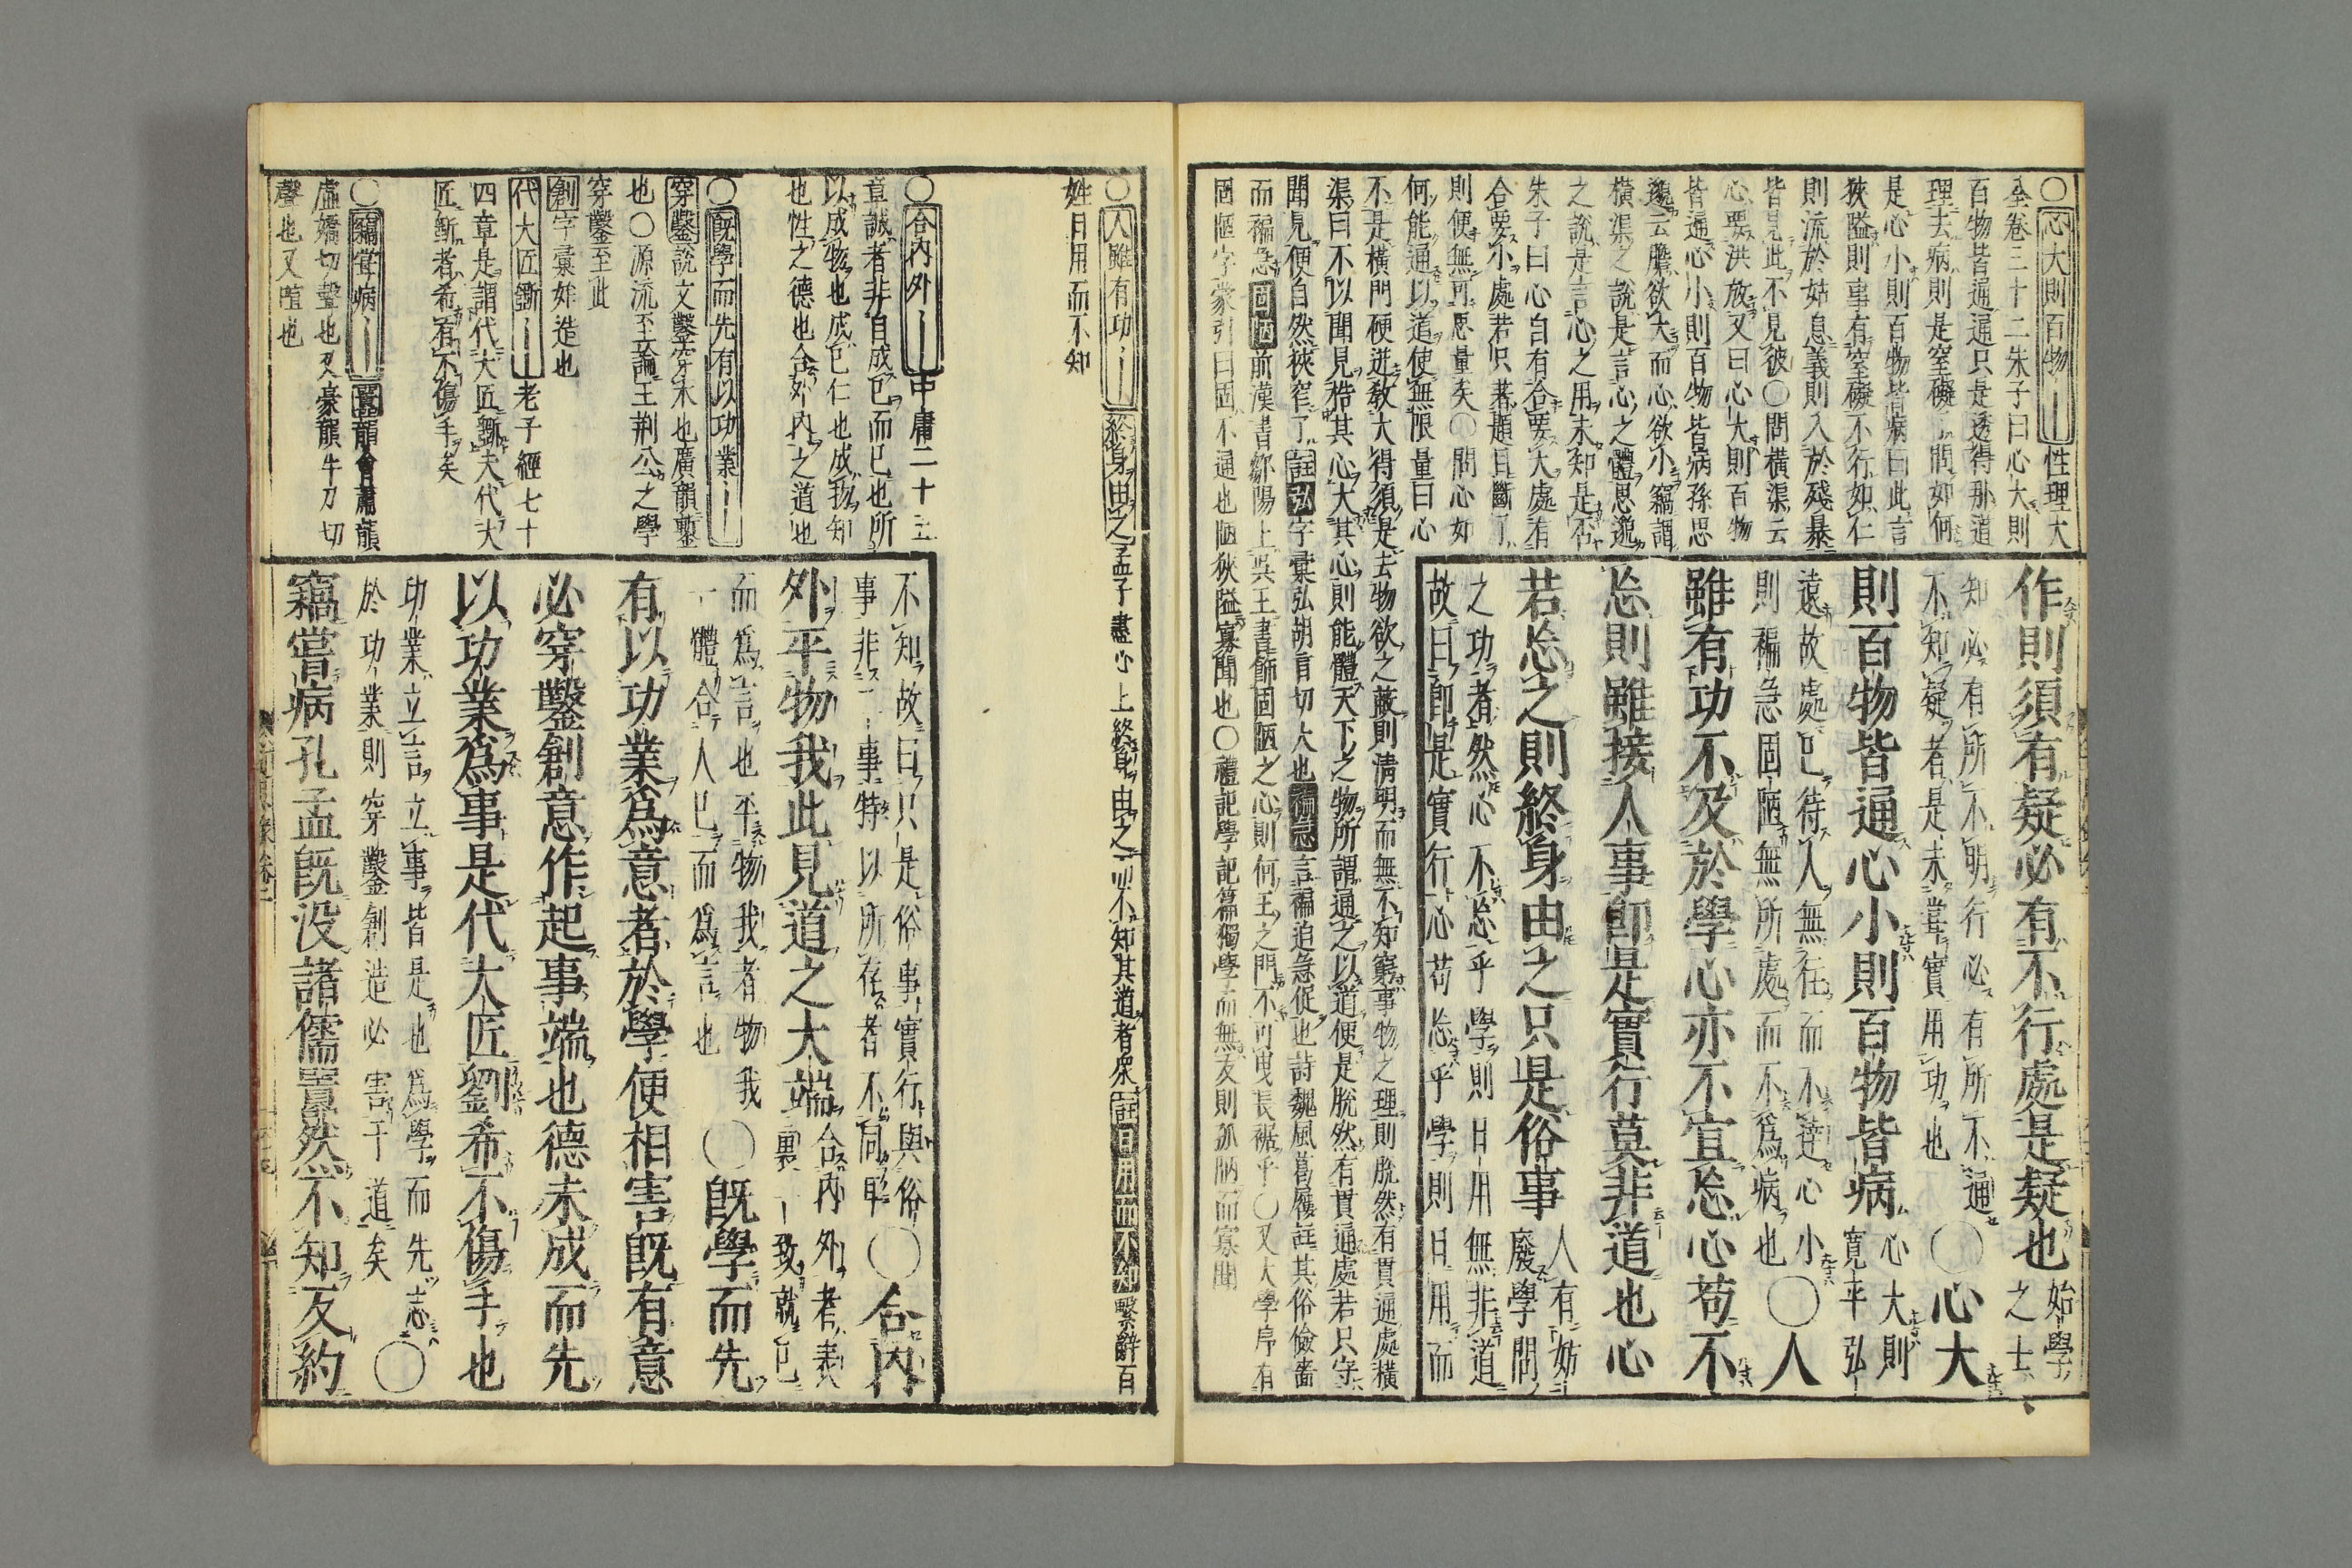 ○心大則百物〡〡性理大
全卷三十二朱子曰心大則
百物皆通通只是透得那道
理去病則是窒礙了問如何
是心小則百物皆病曰此言
狹隘則事有窒礙不行如仁
則流於姑息義則入於殘暴
皆見此不見彼○問橫渠云
心要洪放又曰心大則百物
皆通心小則百物皆病孫思
邈云膽欲大而心欲小竊謂
橫渠之說是言心之體思邈
之說是言心之用未知是否
朱子曰心自有合要大處有
合要小處若只著題目斷了
則便無可思量矣○問心如
何能通以道使無限量曰心
不是橫門硬迸教大得須是去物欲之蔽則清明而無不知窮事物之理則脫然有貫通處橫
渠曰不以聞見梏其心大其心則能體天下之物所謂通之以道便是脫然有貫通處若只守
聞見便自然狹窄了註弘字彙弘胡肱切大也褊急言褊迫急促也詩魏風葛屨註其俗儉嗇
而褊急固陋前漢書鄒陽上吳王書飾固陋之心則何王之門不可曳長裾乎○又大學序有
固陋字蒙引曰固不通也陋狹隘寡聞也○禮記學記篇獨學而無友則孤陋而寡聞
作則須有疑必有不行處是疑也始學之士
知必有所不明行必有所不通
不知疑者是未嘗實用功也○心大
則百物皆通心小則百物皆病心大則寬平弘
遠故處己待人無往而不達心小
則褊急固陋無所處而不爲病也○人
雖有功不及於學心亦不宜忘心苟不
忘則雖接人事卽是實行莫非道也心
若忘之則終身由之只是俗事人有妨廢學問
之功者然心不忘乎學則日用無非道
故曰卽是實行心苟忘乎學則日用而
○人雖有功〡〡終身由之孟子盡心上終身由之而不知其道者衆註日用而不知繫辭百
姓日用而不知
○合內外〡〡中庸二十五
章誠者非自成己而已也所
以成物也成己仁也成物知
也性之德也合外內之道也
○既學而先有以功業〡〡
穿鑿說文鑿穿木也廣韻鏨
也○源流至論王荆公之學
穿鑿至此
創字彙始造也
代大匠斵〡〡老子經七十
四章是謂代大匠斵夫代大
匠斵者希有不傷手矣
○竊嘗病〡〡
虛嬌切聲也又豪韻牛刀切
聲也又喧也
不知故曰只是俗事實行與俗
事非二事特以所存者不同耳○合內
外平物我此見道之大端合內外者表裏一致就己
而爲言也平物我者物我
一體合人己而爲言也○既學而先
有以功業爲意者於學便相害既有意
必穿鑿創意作起事端也德未成而先
以功業爲事是代大匠斲希不傷手也
功業立言立事皆是也爲學而先志
於功業則穿鑿創造必害于道矣○
竊嘗病孔孟既没諸儒囂然不知反約